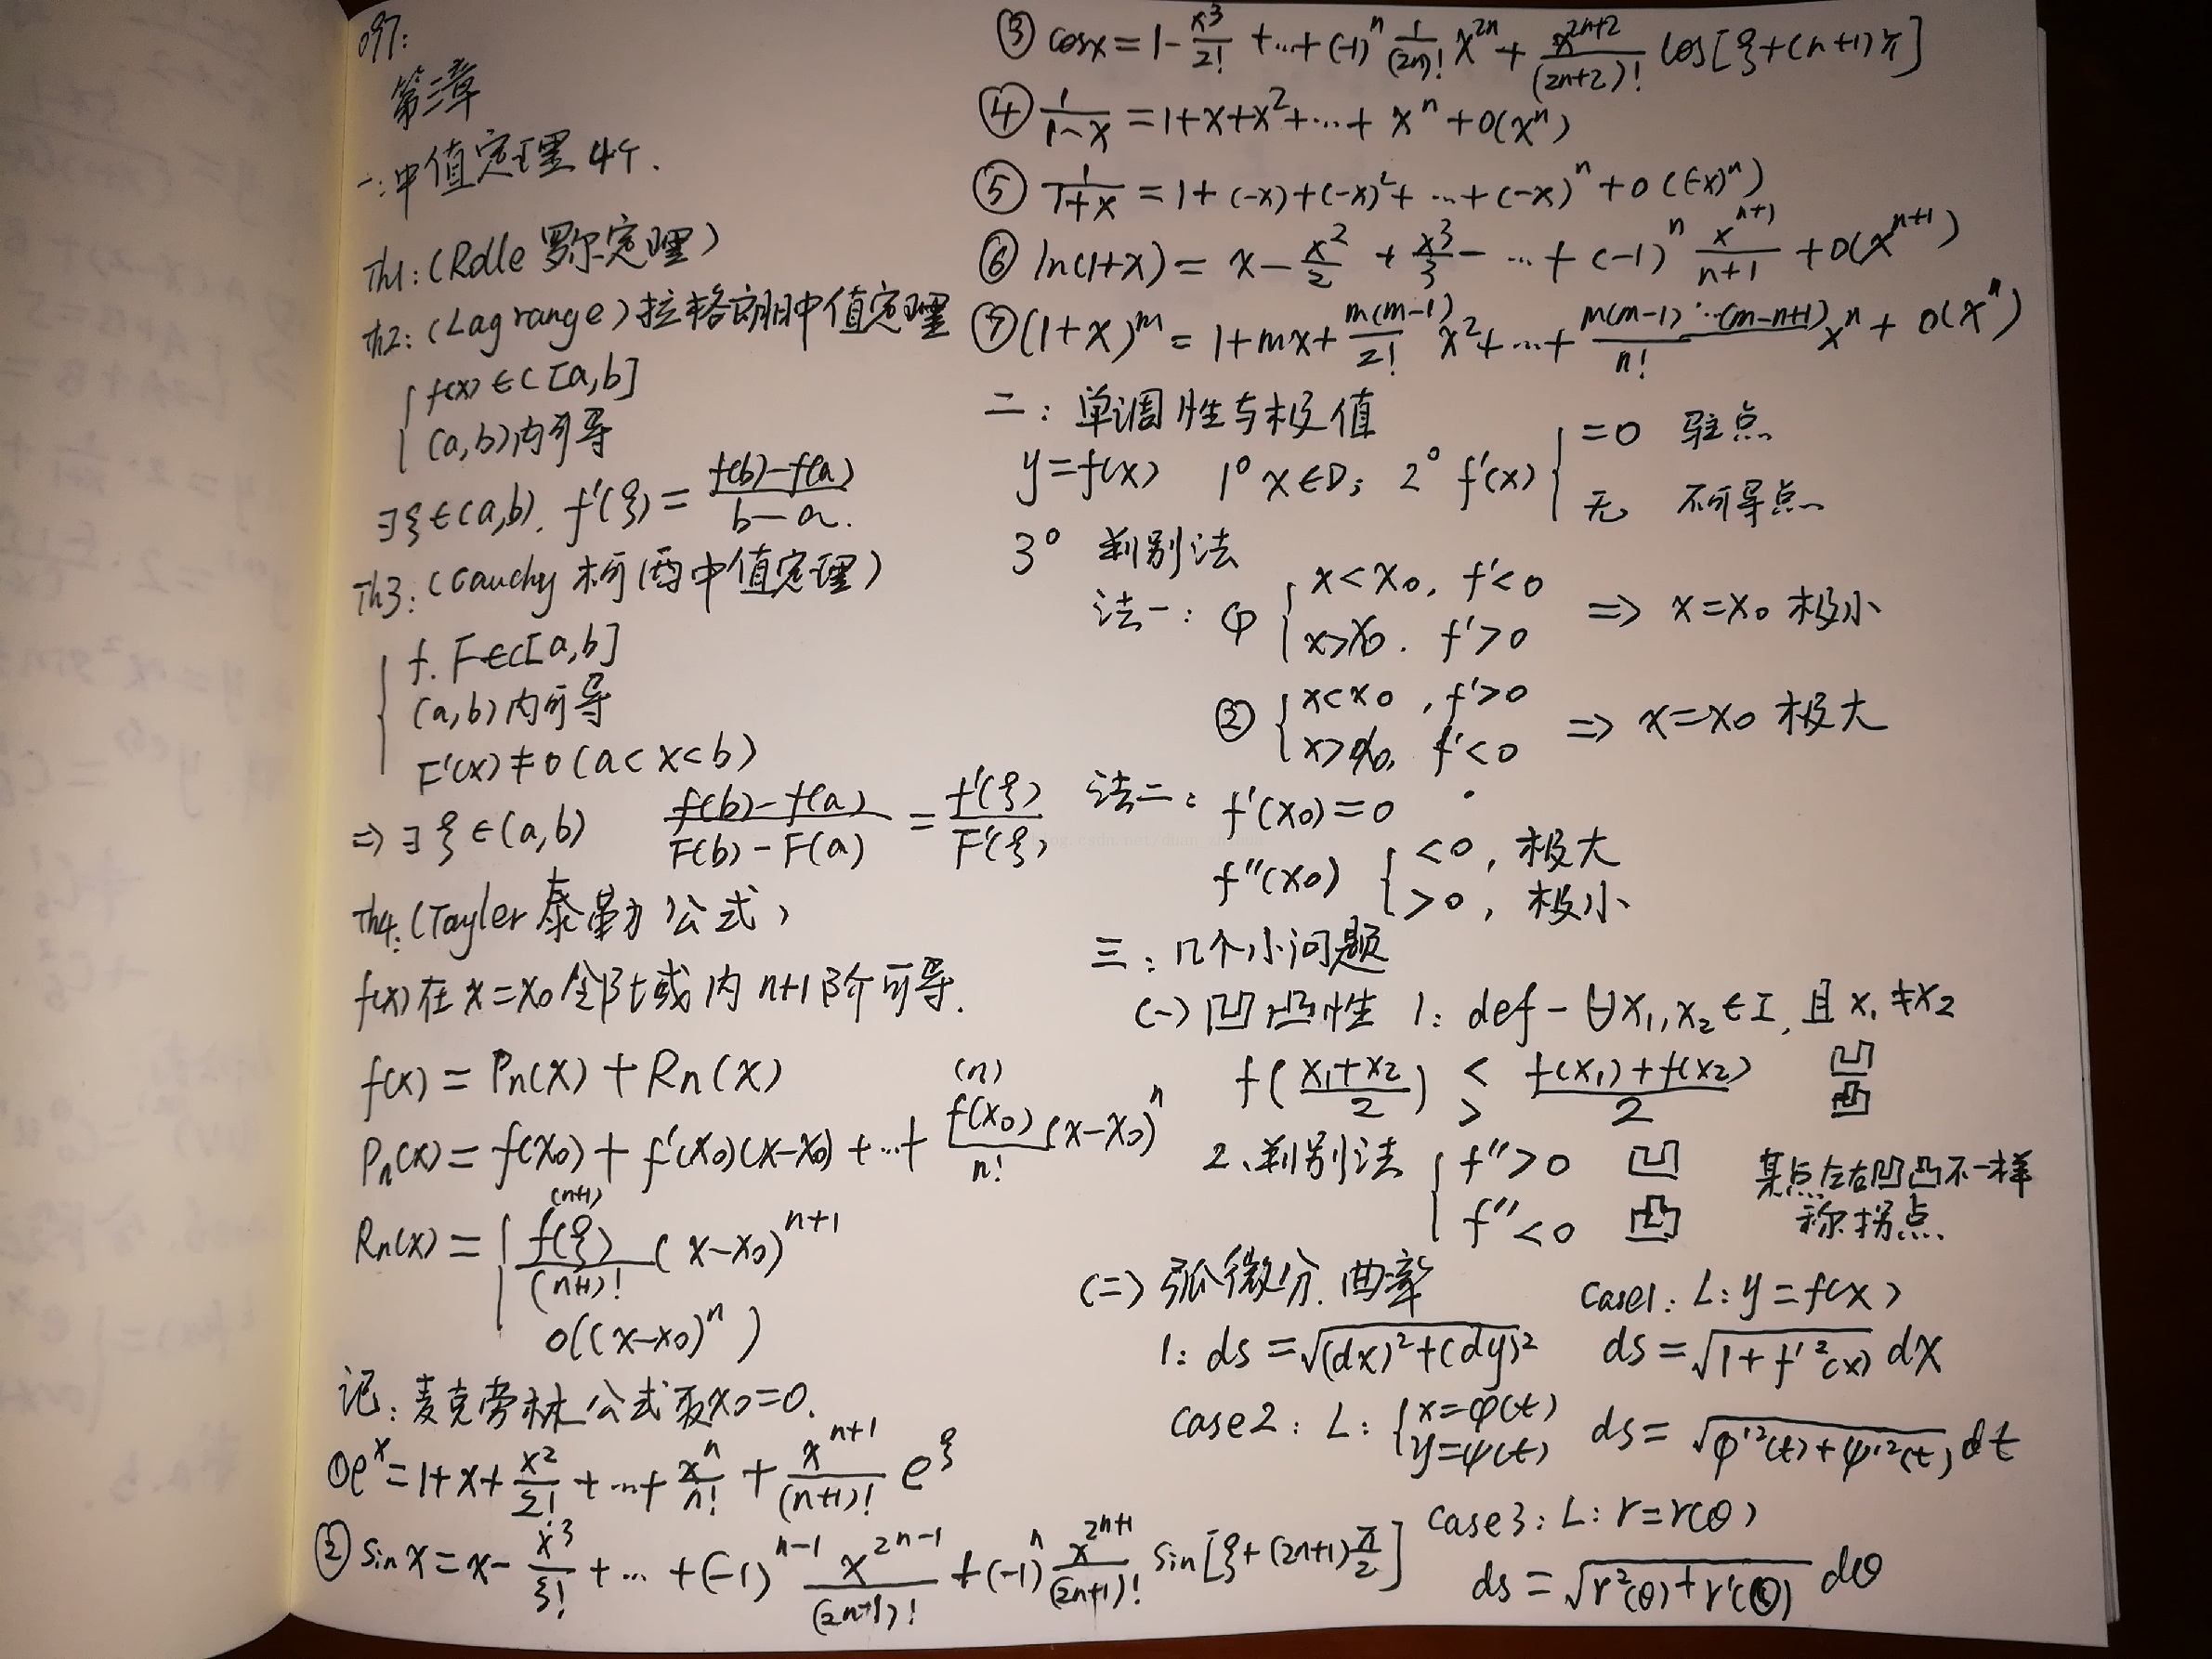 097:
第三章
一:中值定理 4个.
Th1:(Rolle 罗尔定理)
th2:(Lagrange)拉格朗日中值定理
{ f(x)∈C[a,b]
(a,b)内可导
∃ξ∈(a,b). f'(ξ)= (f(b)-f(a))/(b-a).
Th3:(Cauchy 柯西中值定理)
{ f. F∈C[a,b]
(a,b)内可导
F'(x)≠0(a<x<b)
⇒∃ξ∈(a,b) (f(b)-f(a))/(F(b)-F(a)) = f'(ξ)/F'(ξ)
Th4:(Tayler 泰勒公式)
f(x)在x=x0邻域内n+1阶可导.
f(x)=Pn(x)+Rn(x)
Pn(x)=f(x0)+f'(x0)(x-x0)+…+ f^(n)(x0)/n! (x-x0)^n
Rn(x)={ f^(n+1)(ξ)/(n+1)! (x-x0)^(n+1)
o((x-x0)^n)
记:麦克劳林公式取x0=0.
① e^x=1+x+x^2/2!+…+x^n/n!+x^(n+1)/(n+1)! e^ξ
② sinx=x-x^3/3!+…+(-1)^(n-1) x^(2n-1)/(2n-1)!+(-1)^n x^(2n+1)/(2n+1)! sin[ξ+(2n+1)π/2]
③ cosx=1-x^3/2!+…+(-1)^n 1/(2n)! x^(2n)+x^(2n+2)/(2n+2)! cos[ξ+(n+1)π]
④ 1/(1-x)=1+x+x^2+…+x^n+o(x^n)
⑤ 1/(1+x)=1+(-x)+(-x)^2+…+(-x)^n+o((-x)^n)
⑥ ln(1+x)=x-x^2/2+x^3/3-…+(-1)^n x^(n+1)/(n+1)+o(x^(n+1))
⑦ (1+x)^m=1+mx+m(m-1)/2! x^2+…+m(m-1)…(m-n+1)/n! x^n+o(x^n)
二:单调性与极值
y=f(x) 1° x∈D; 2° f'(x) { =0 驻点
无 不可导点
3° 判别法
法一:① { x<x0, f'<0
x>x0. f'>0 ⇒ x=x0 极小
② { x<x0, f'>0
x>x0, f'<0 ⇒ x=x0 极大
法二: f'(x0)=0
f''(x0) { <0, 极大
>0, 极小
三:几个小问题
(一)凹凸性 1: def-∀x1,x2∈I,且x1≠x2
f((x1+x2)/2) < (f(x1)+f(x2))/2 凹
> 凸
2.判别法 { f''>0 凹
f''<0 凸
某点左右凹凸不一样
称拐点.
(二)弧微分.曲率
1: ds=√((dx)^2+(dy)^2)
case1: L:y=f(x)
ds=√(1+f'^2(x)) dx
case2: L:{ x=φ(t)
y=ψ(t) ds=√(φ'^2(t)+ψ'^2(t)) dt
case3: L: r=r(θ)
ds=√(r^2(θ)+r'(θ)) dθ